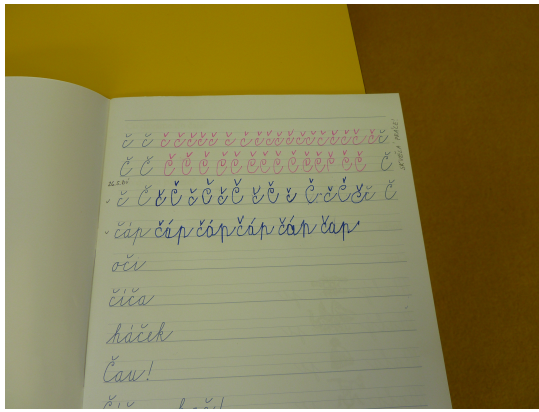 č č č č č č č č č č č č č č č č č č č č
Č Č Č Č Č Č Č Č Č Č Č Č Č Č Č Č Č
č Č č Č č Č č Č č Č č Č č Č č č Č
čáp čáp čáp čáp čáp čap
oči
číča
háček
Čau!